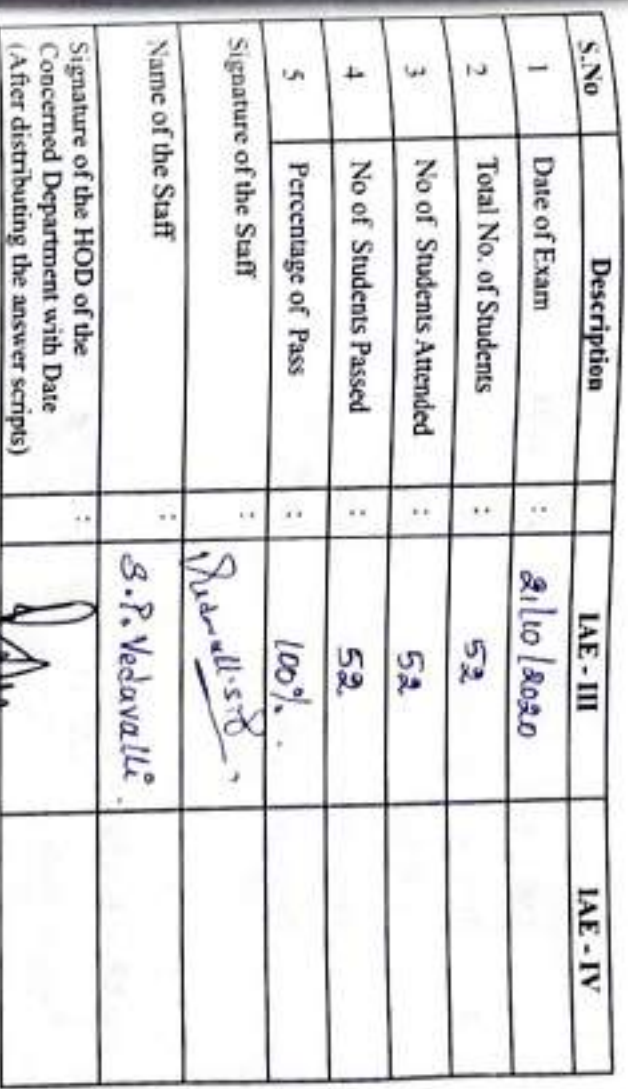 S.No Description IAE - III IAE - IV
1 Date of Exam : 21/10/2020
2 Total No. of Students : 52
3 No of Students Attended : 52
4 No of Students Passed : 52
5 Percentage of Pass : 100%.
Signature of the Staff :
Name of the Staff : S.P. Vedavalli.
Signature of the HOD of the
Concerned Department with Date :
(After distributing the answer scripts)